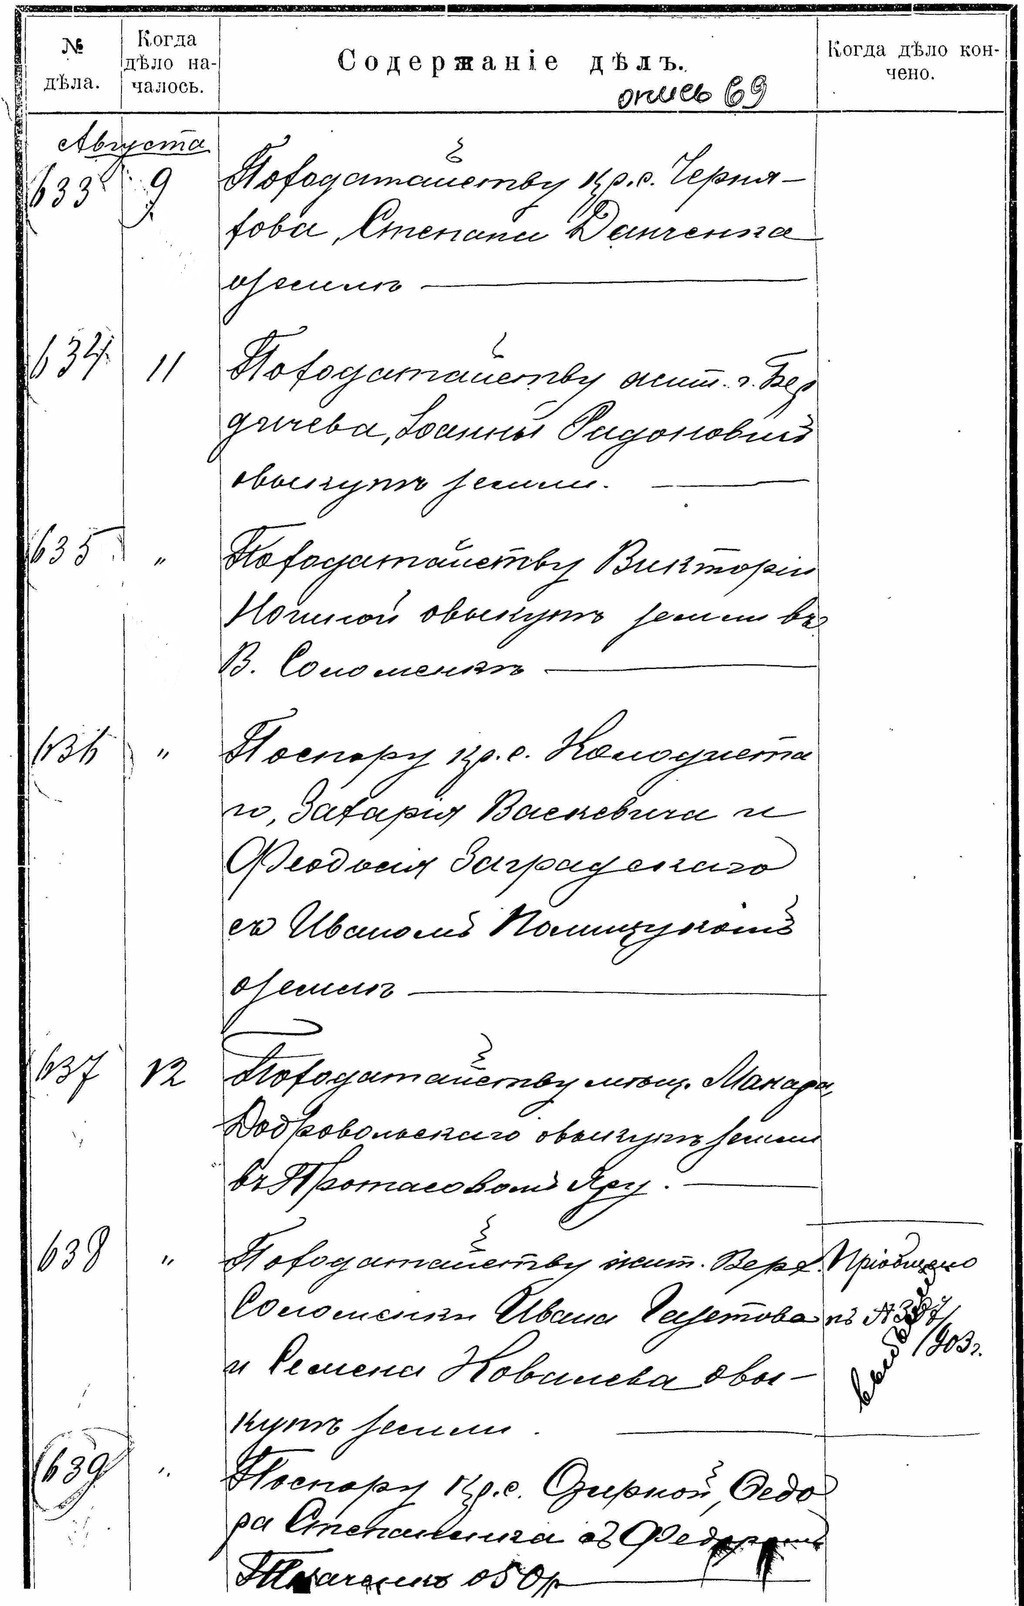 № дѣла.
Когда дѣло на-
чалось.
Содержаніе дѣлъ.
Когда дѣло кон-
чено.
опись 69
Августа
633 9 По ходатайству кр. с. Черня-
хова, Степана Данченка
о землѣ
634 11 По ходатайству жит. г. Бер
дичева, Іоанны Радоновий
о выкупѣ земли.
635 " По ходатайству Викторіи
о выкупѣ земли въ
В. Соломенкѣ
636 " По спору кр. с. Колодиста
го, Захарія Васкевича и
Феодосія Заградскаго
съ Иваномъ Полищукомъ
о землѣ
637 12 По ходатайству мѣщ. Макара
Добровольскаго о выкупѣ земли
въ Протасовомъ Яру.
638 " По ходатайству жит. Верх.
Соломенки Ивана Газетова
и Семена Ковалева о вы-
купѣ земли.
Пріобщено
къ № 367/
/903 г.
639 " По спору кр. с. Озирной, Федо
ра Степаненка съ Федоромъ
Ткаченкѣ о 50 р